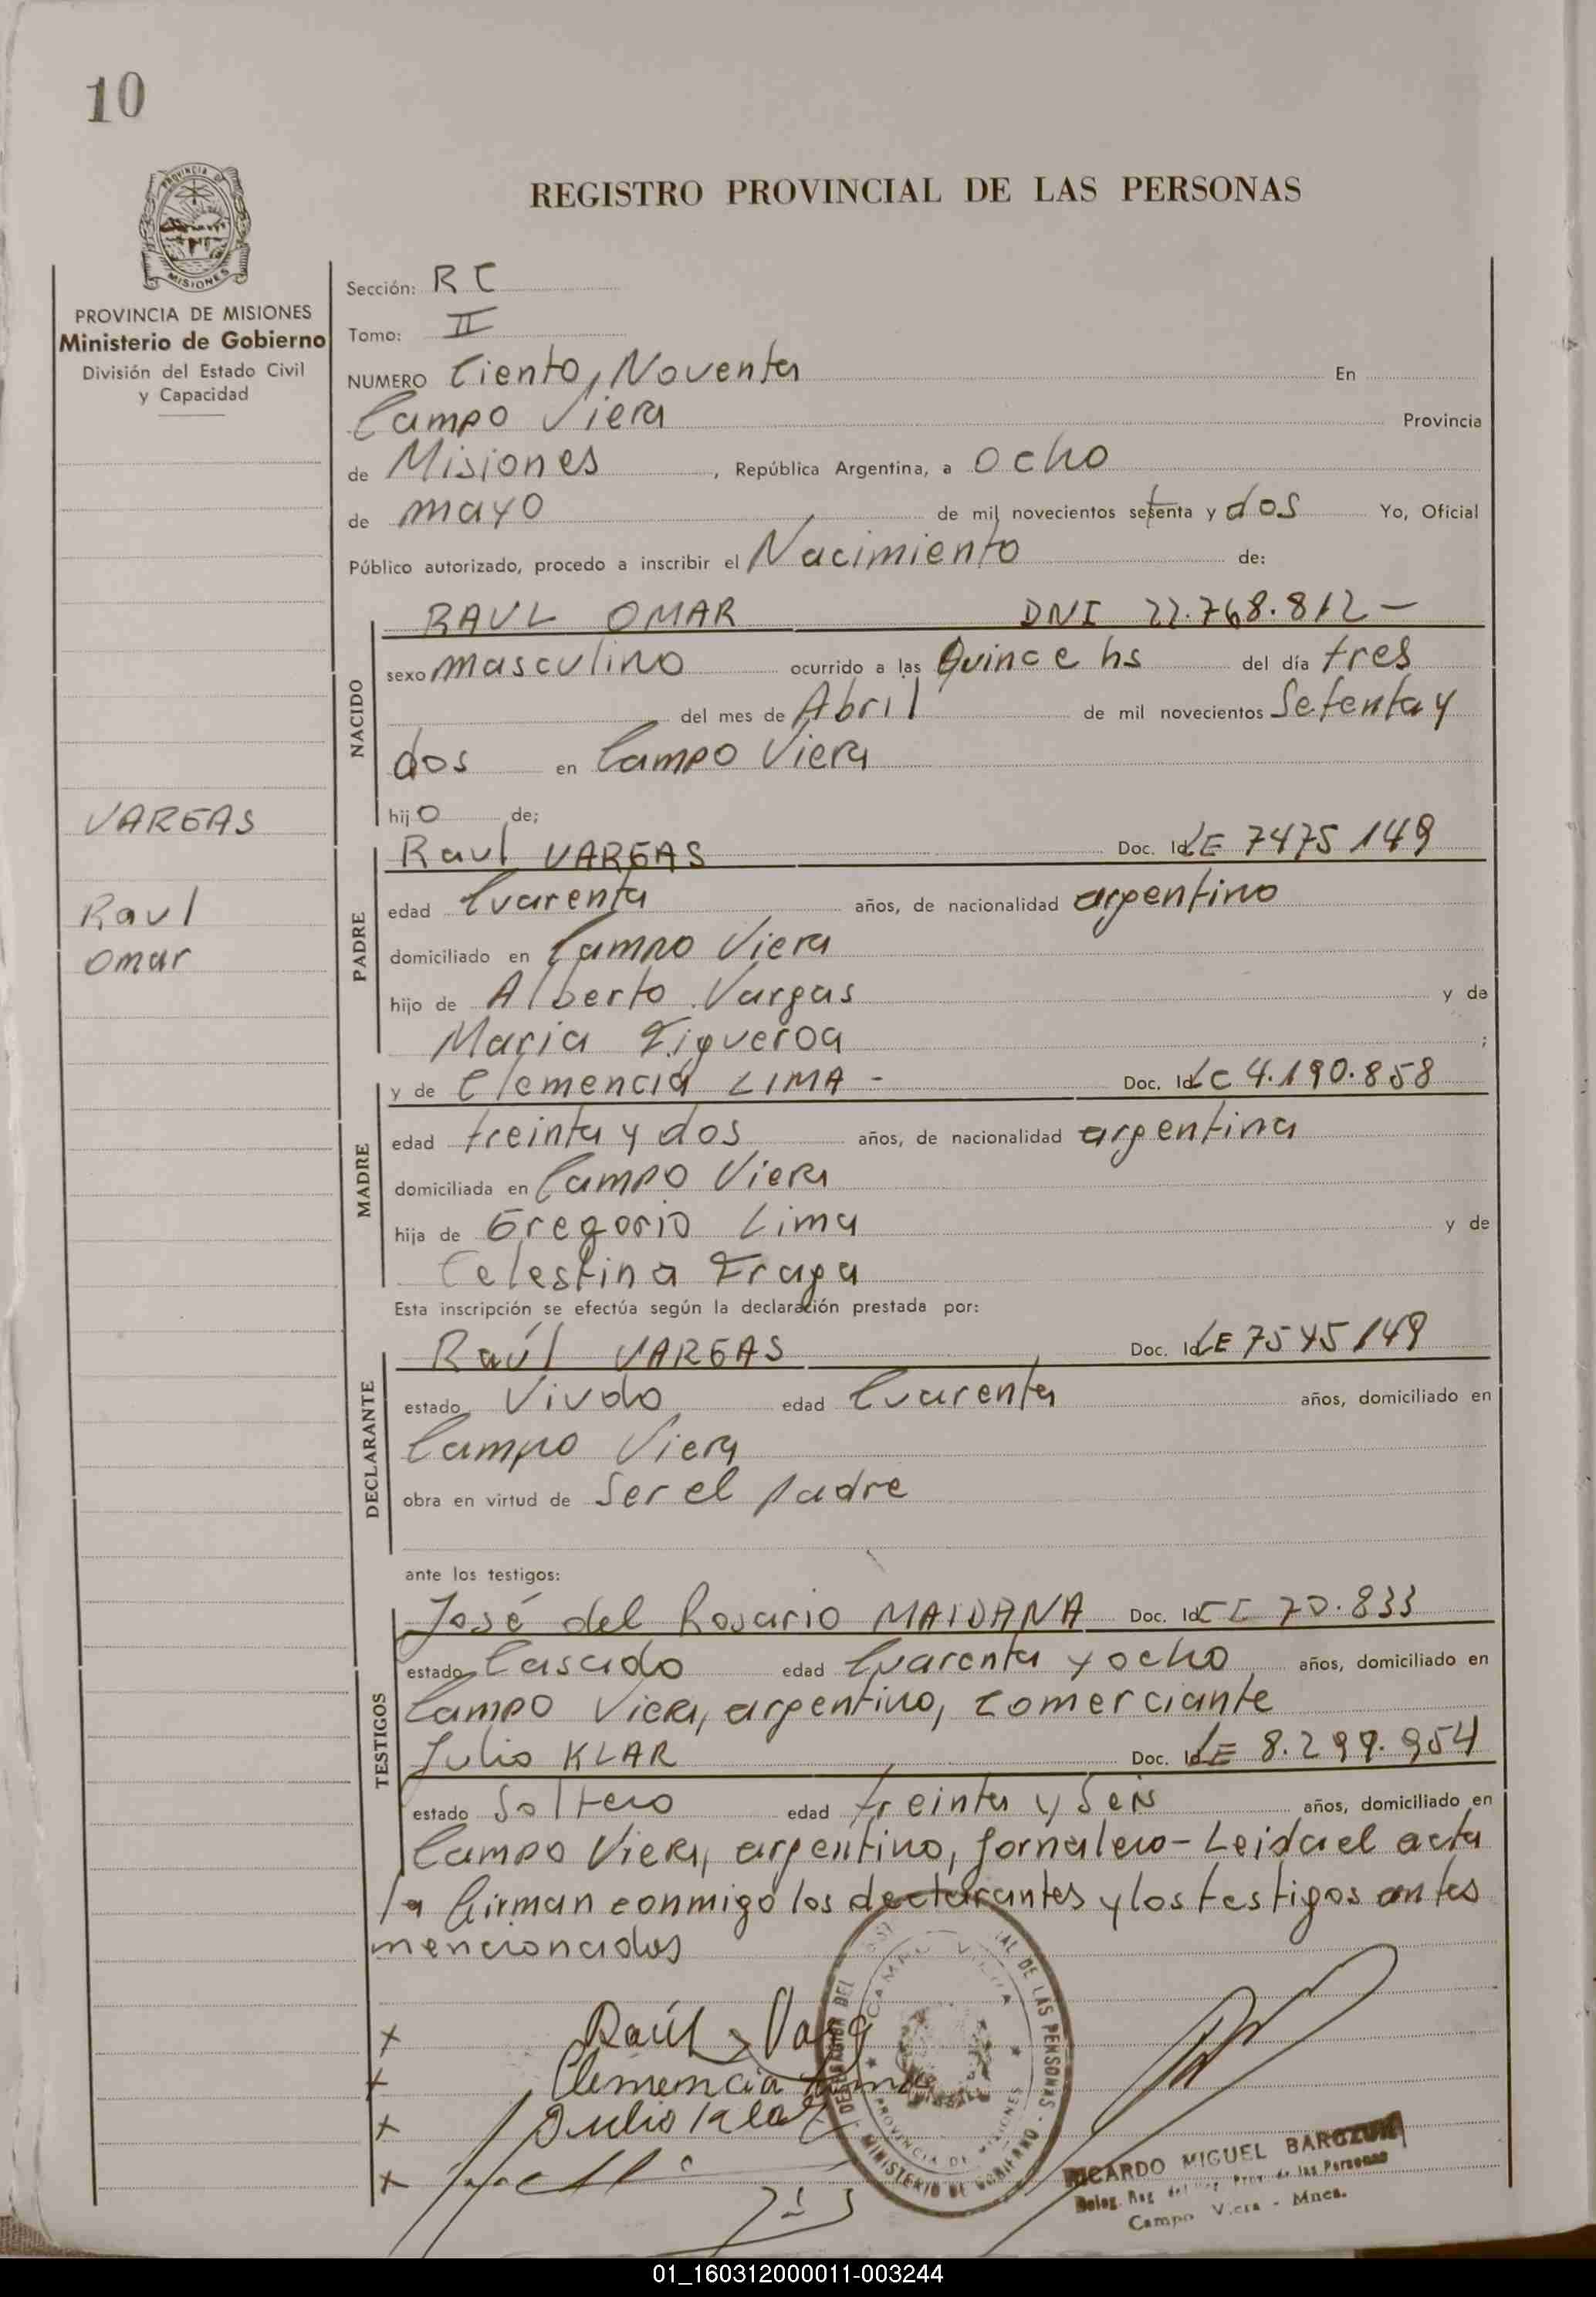 10
PROVINCIA DE MISIONES
REGISTRO PROVINCIAL DE LAS PERSONAS
PROVINCIA DE MISIONES
Ministerio de Gobierno
División del Estado Civil
y Capacidad
Sección: RC
Tomo: II
NUMERO Ciento, Noventa En
Campo Viera Provincia
de Misiones, República Argentina, a ocho
de mayo de mil novecientos setenta y dos Yo, Oficial
Público autorizado, procedo a inscribir el Nacimiento de:
RAUL OMAR DNI 22.768.812 —
NACIDO
sexo masculino ocurrido a las Quince hs del día tres
del mes de Abril de mil novecientos Setenta y
dos en Campo Viera
hijo de;
VARGAS
Raul
Omar
PADRE
Raul VARGAS Doc. Id. LE 7475149
edad Cuarenta años, de nacionalidad argentino
domiciliado en Campo Viera
hijo de Alberto Vargas y de
Maria Figueroa ;
MADRE
y de Clemencia LIMA - Doc. Id. LC 4.190.858
edad treinta y dos años, de nacionalidad argentina
domiciliada en Campo Viera
hija de Gregorio Lima y de
Celestina Fraga
Esta inscripción se efectúa según la declaración prestada por:
DECLARANTE
Raúl VARGAS Doc. Id. LE 7545149
estado Viudo edad Cuarenta años, domiciliado en
Campo Viera
obra en virtud de Ser el padre
ante los testigos:
TESTIGOS
José del Rosario MAIDANA Doc. Id. CI 70.833
estado Casado edad Cuarenta y ocho años, domiciliado en
Campo Viera, argentino, comerciante
Julio KLAR Doc. Id. LE 8.299.954
estado Soltero edad treinta y Seis años, domiciliado en
Campo Viera, argentino, Jornalero - Leida el acta
la firman conmigo los declarantes y los testigos antes
mencionados
x Raúl Varg
x Clemencia Lima
x Julio Klar
x
DELEGACION DEL DE LAS PERSONAS
CAMPO VIERA
PROVINCIA DE MISIONES
MINISTERIO DE GOBIERNO
RICARDO MIGUEL
Deleg. Reg. del Reg. Prov. de las Personas
Campo Viera - Mnes.
01_160312000011-003244